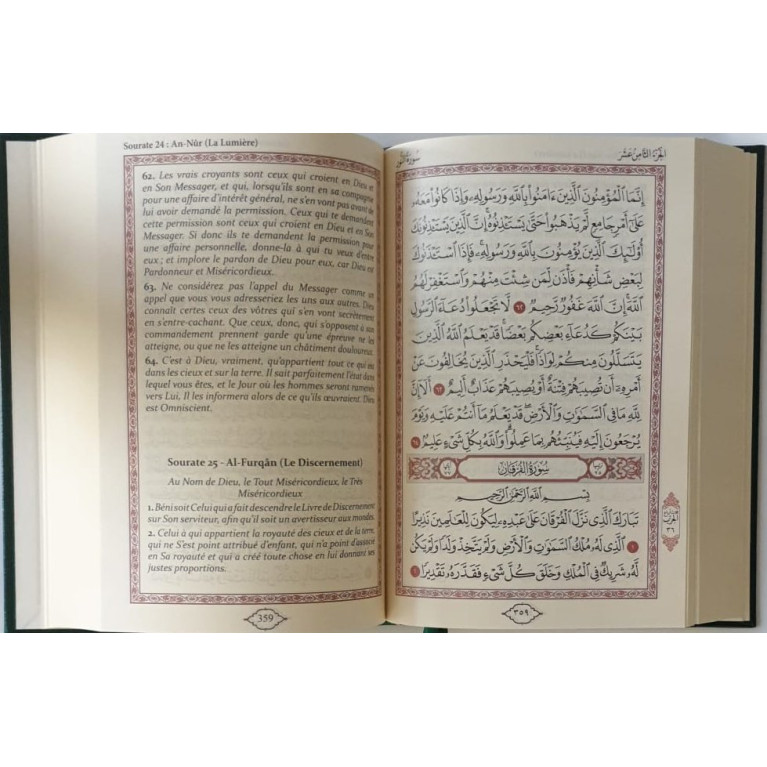 Sourate 24 : An-Nûr (La Lumière)
62. Les vrais croyants sont ceux qui croient en Dieu et
en Son Messager, et qui, lorsqu'ils sont en sa compagnie
pour une affaire d'intérêt général, ne s'en vont pas avant de
lui avoir demandé la permission. Ceux qui te demandent
cette permission sont ceux qui croient en Dieu et en Son
Messager. Si donc ils te demandent la permission pour
une affaire personnelle, donne-la à qui tu veux d'entre
eux ; et implore le pardon de Dieu pour eux, car Dieu est
Pardonneur et Miséricordieux.
63. Ne considérez pas l'appel du Messager comme un
appel que vous vous adresseriez les uns aux autres. Dieu
connaît certes ceux des vôtres qui s'en vont secrètement
en s'entre-cachant. Que ceux, donc, qui s'opposent à son
commandement prennent garde qu'une épreuve ne les
atteigne, ou que ne les atteigne un châtiment douloureux.
64. C'est à Dieu, vraiment, qu'appartient tout ce qui est
dans les cieux et sur la terre. Il sait parfaitement l'état dans
lequel vous êtes, et le Jour où les hommes seront ramenés
vers Lui, Il les informera alors de ce qu'ils œuvraient. Dieu
est Omniscient.
Sourate 25 - Al-Furqân (Le Discernement)
Au Nom de Dieu, le Tout Miséricordieux, le Très
Miséricordieux
1. Béni soit Celui qui a fait descendre le Livre de Discernement
sur Son serviteur, afin qu'il soit un avertisseur aux mondes.
2. Celui à qui appartient la royauté des cieux et de la terre,
qui ne S'est point attribué d'enfant, qui n'a point d'associé
en Sa royauté et qui a créé toute chose en lui donnant ses
justes proportions.
359
الجزء الثامن عشر
سورة النور
إِنَّمَا ٱلْمُؤْمِنُونَ ٱلَّذِينَ ءَامَنُوا۟ بِٱللَّهِ وَرَسُولِهِۦ وَإِذَا كَانُوا۟ مَعَهُۥ
عَلَىٰٓ أَمْرٍ جَامِعٍ لَّمْ يَذْهَبُوا۟ حَتَّىٰ يَسْتَـْٔذِنُوهُ ۚ إِنَّ ٱلَّذِينَ يَسْتَـْٔذِنُونَكَ
أُو۟لَـٰٓئِكَ ٱلَّذِينَ يُؤْمِنُونَ بِٱللَّهِ وَرَسُولِهِۦ ۚ فَإِذَا ٱسْتَـْٔذَنُوكَ
لِبَعْضِ شَأْنِهِمْ فَأْذَن لِّمَن شِئْتَ مِنْهُمْ وَٱسْتَغْفِرْ لَهُمُ
ٱللَّهَ ۚ إِنَّ ٱللَّهَ غَفُورٌ رَّحِيمٌ ٦٢ لَّا تَجْعَلُوا۟ دُعَآءَ ٱلرَّسُولِ
بَيْنَكُمْ كَدُعَآءِ بَعْضِكُم بَعْضًا ۚ قَدْ يَعْلَمُ ٱللَّهُ ٱلَّذِينَ
يَتَسَلَّلُونَ مِنكُمْ لِوَاذًا ۚ فَلْيَحْذَرِ ٱلَّذِينَ يُخَالِفُونَ عَنْ
أَمْرِهِۦٓ أَن تُصِيبَهُمْ فِتْنَةٌ أَوْ يُصِيبَهُمْ عَذَابٌ أَلِيمٌ ٦٣ أَلَآ إِنَّ
لِلَّهِ مَا فِى ٱلسَّمَـٰوَٰتِ وَٱلْأَرْضِ ۖ قَدْ يَعْلَمُ مَآ أَنتُمْ عَلَيْهِ وَيَوْمَ
يُرْجَعُونَ إِلَيْهِ فَيُنَبِّئُهُم بِمَا عَمِلُوا۟ ۗ وَٱللَّهُ بِكُلِّ شَىْءٍ عَلِيمٌ ٦٤
سورة الفرقان
بِسْمِ ٱللَّهِ ٱلرَّحْمَـٰنِ ٱلرَّحِيمِ
تَبَارَكَ ٱلَّذِى نَزَّلَ ٱلْفُرْقَانَ عَلَىٰ عَبْدِهِۦ لِيَكُونَ لِلْعَـٰلَمِينَ نَذِيرًا
١ ٱلَّذِى لَهُۥ مُلْكُ ٱلسَّمَـٰوَٰتِ وَٱلْأَرْضِ وَلَمْ يَتَّخِذْ وَلَدًا وَلَمْ يَكُن
لَّهُۥ شَرِيكٌ فِى ٱلْمُلْكِ وَخَلَقَ كُلَّ شَىْءٍ فَقَدَّرَهُۥ تَقْدِيرًا ٢
الحزب
٣٦
٣٥٩